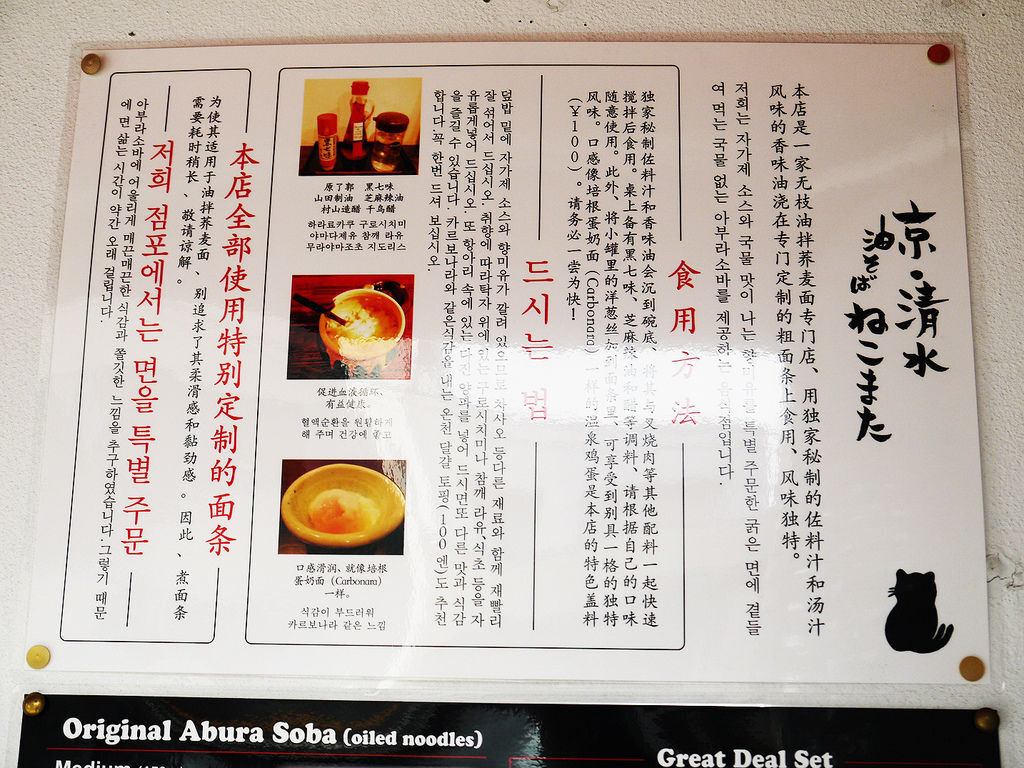 京・清水
油そば
ねこまた
本店是一家无枝油拌荞麦面专门店、用独家秘制的佐料汁和汤汁
风味的香味油浇在专门定制的粗面条上食用、风味独特。
저희는 자가제 소스와 국물 맛이 나는 향미유를 특별 주문한 굵은 면에 곁들
여 먹는 국물 없는 아부라소바를 제공하는 음식점입니다.
食用方法
独家秘制佐料汁和香味油会沉到碗底、将其与叉烧肉等其他配料一起快速
搅拌后食用。桌上备有黑七味、芝麻辣油和醋等调料、请根据自己的口味
随意使用。此外、将小罐里的洋葱丝加到面条里、可享受到别具一格的独特
风味。口感像培根蛋奶面(Carbonara)一样的温泉鸡蛋是本店的特色盖料
(¥100)。请务必一尝为快!
드시는 법
덮밥 밑에 자가제 소스와 향미유가 깔려 있으므로 차사오 등다른 재료와 함께 재빨리
잘 섞어서 드십시오. 취향에 따라탁자 위에 있는 구로시치미나 참깨 라유,식초 등을 자
유롭게넣어 드십시오. 또 항아리 속에 있는 다진 양파를 넣어 드시면또 다른 맛과 식감
을 즐길 수 있습니다. 카르보나라와 같은식감을 내는 온천 달걀 토핑(100엔)도 추천
합니다.꼭 한번 드셔 보십시오.
原了郭 黑七味
山田制油 芝麻辣油
村山造醋 千鸟醋
하라료카쿠 구로시치미
야마다제유 참깨 라유
무라야마조초 지도리스
促进血液循环、
有益健康。
혈액순환을 원활하게
해 주며 건강에 좋고
口感滑润、就像培根
蛋奶面(Carbonara)
一样。
식감이 부드러워
카르보나라 같은 느낌
本店全部使用特别定制的面条
为使其适用于油拌荞麦面、别追求了其柔滑感和黏劲感。因此、煮面条
需要耗时稍长、敬请谅解。
저희 점포에서는 면을 특별 주문
아부라소바에 어울리게 매끈매끈한 식감과 쫄깃한 느낌을 추구하였습니다.그렇기 때문
에 면 삶는 시간이 약간 오래 걸립니다.
Original Abura Soba (oiled noodles)
Medium
Great Deal Set